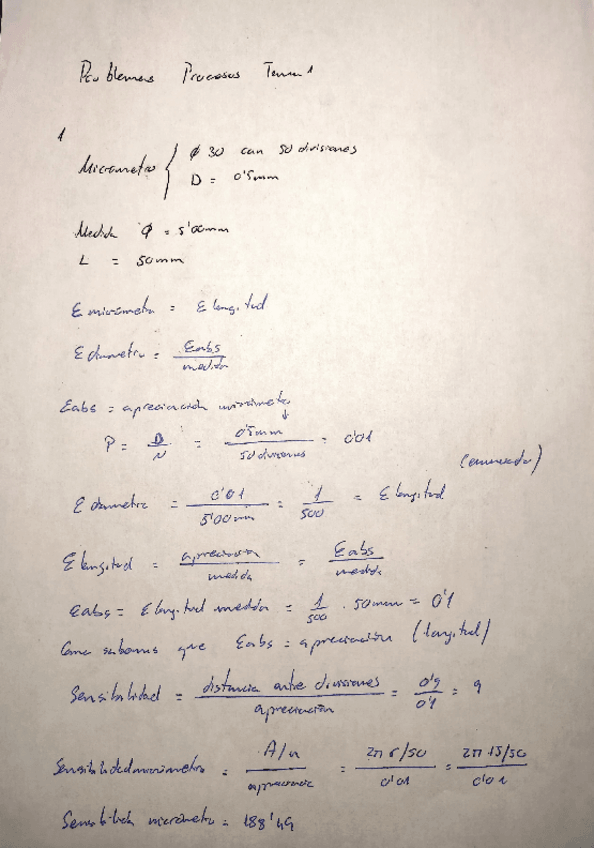 Problemas Procesos Tema 1
1
Micrometro { Ø 30 con 50 divisiones
D = 0'5mm
Medida Ø = 5'00mm
L = 50mm
E micrometro = E longitud
E diametro = Eabs / medida
Eabs = apreciación micrometro
P = D / N = 0'5mm / 50 divisiones = 0'01
(enunciado)
E diametro = 0'01 / 5'00mm = 1 / 500 = E longitud
E longitud = apreciacion / medida = Eabs / medida
Eabs = E longitud medida = 1 / 500 · 50mm = 0'1
Como sabemos que Eabs = apreciación (longitud)
Sensibilidad = distancia entre divisiones / apreciación = 0'9 / 0'1 = 9
Sensibilidad micrometro = A/n / apreciacion = 2π r/50 / 0'01 = 2π 15/50 / 0'01
Sensibilida micrómetro = 188'49